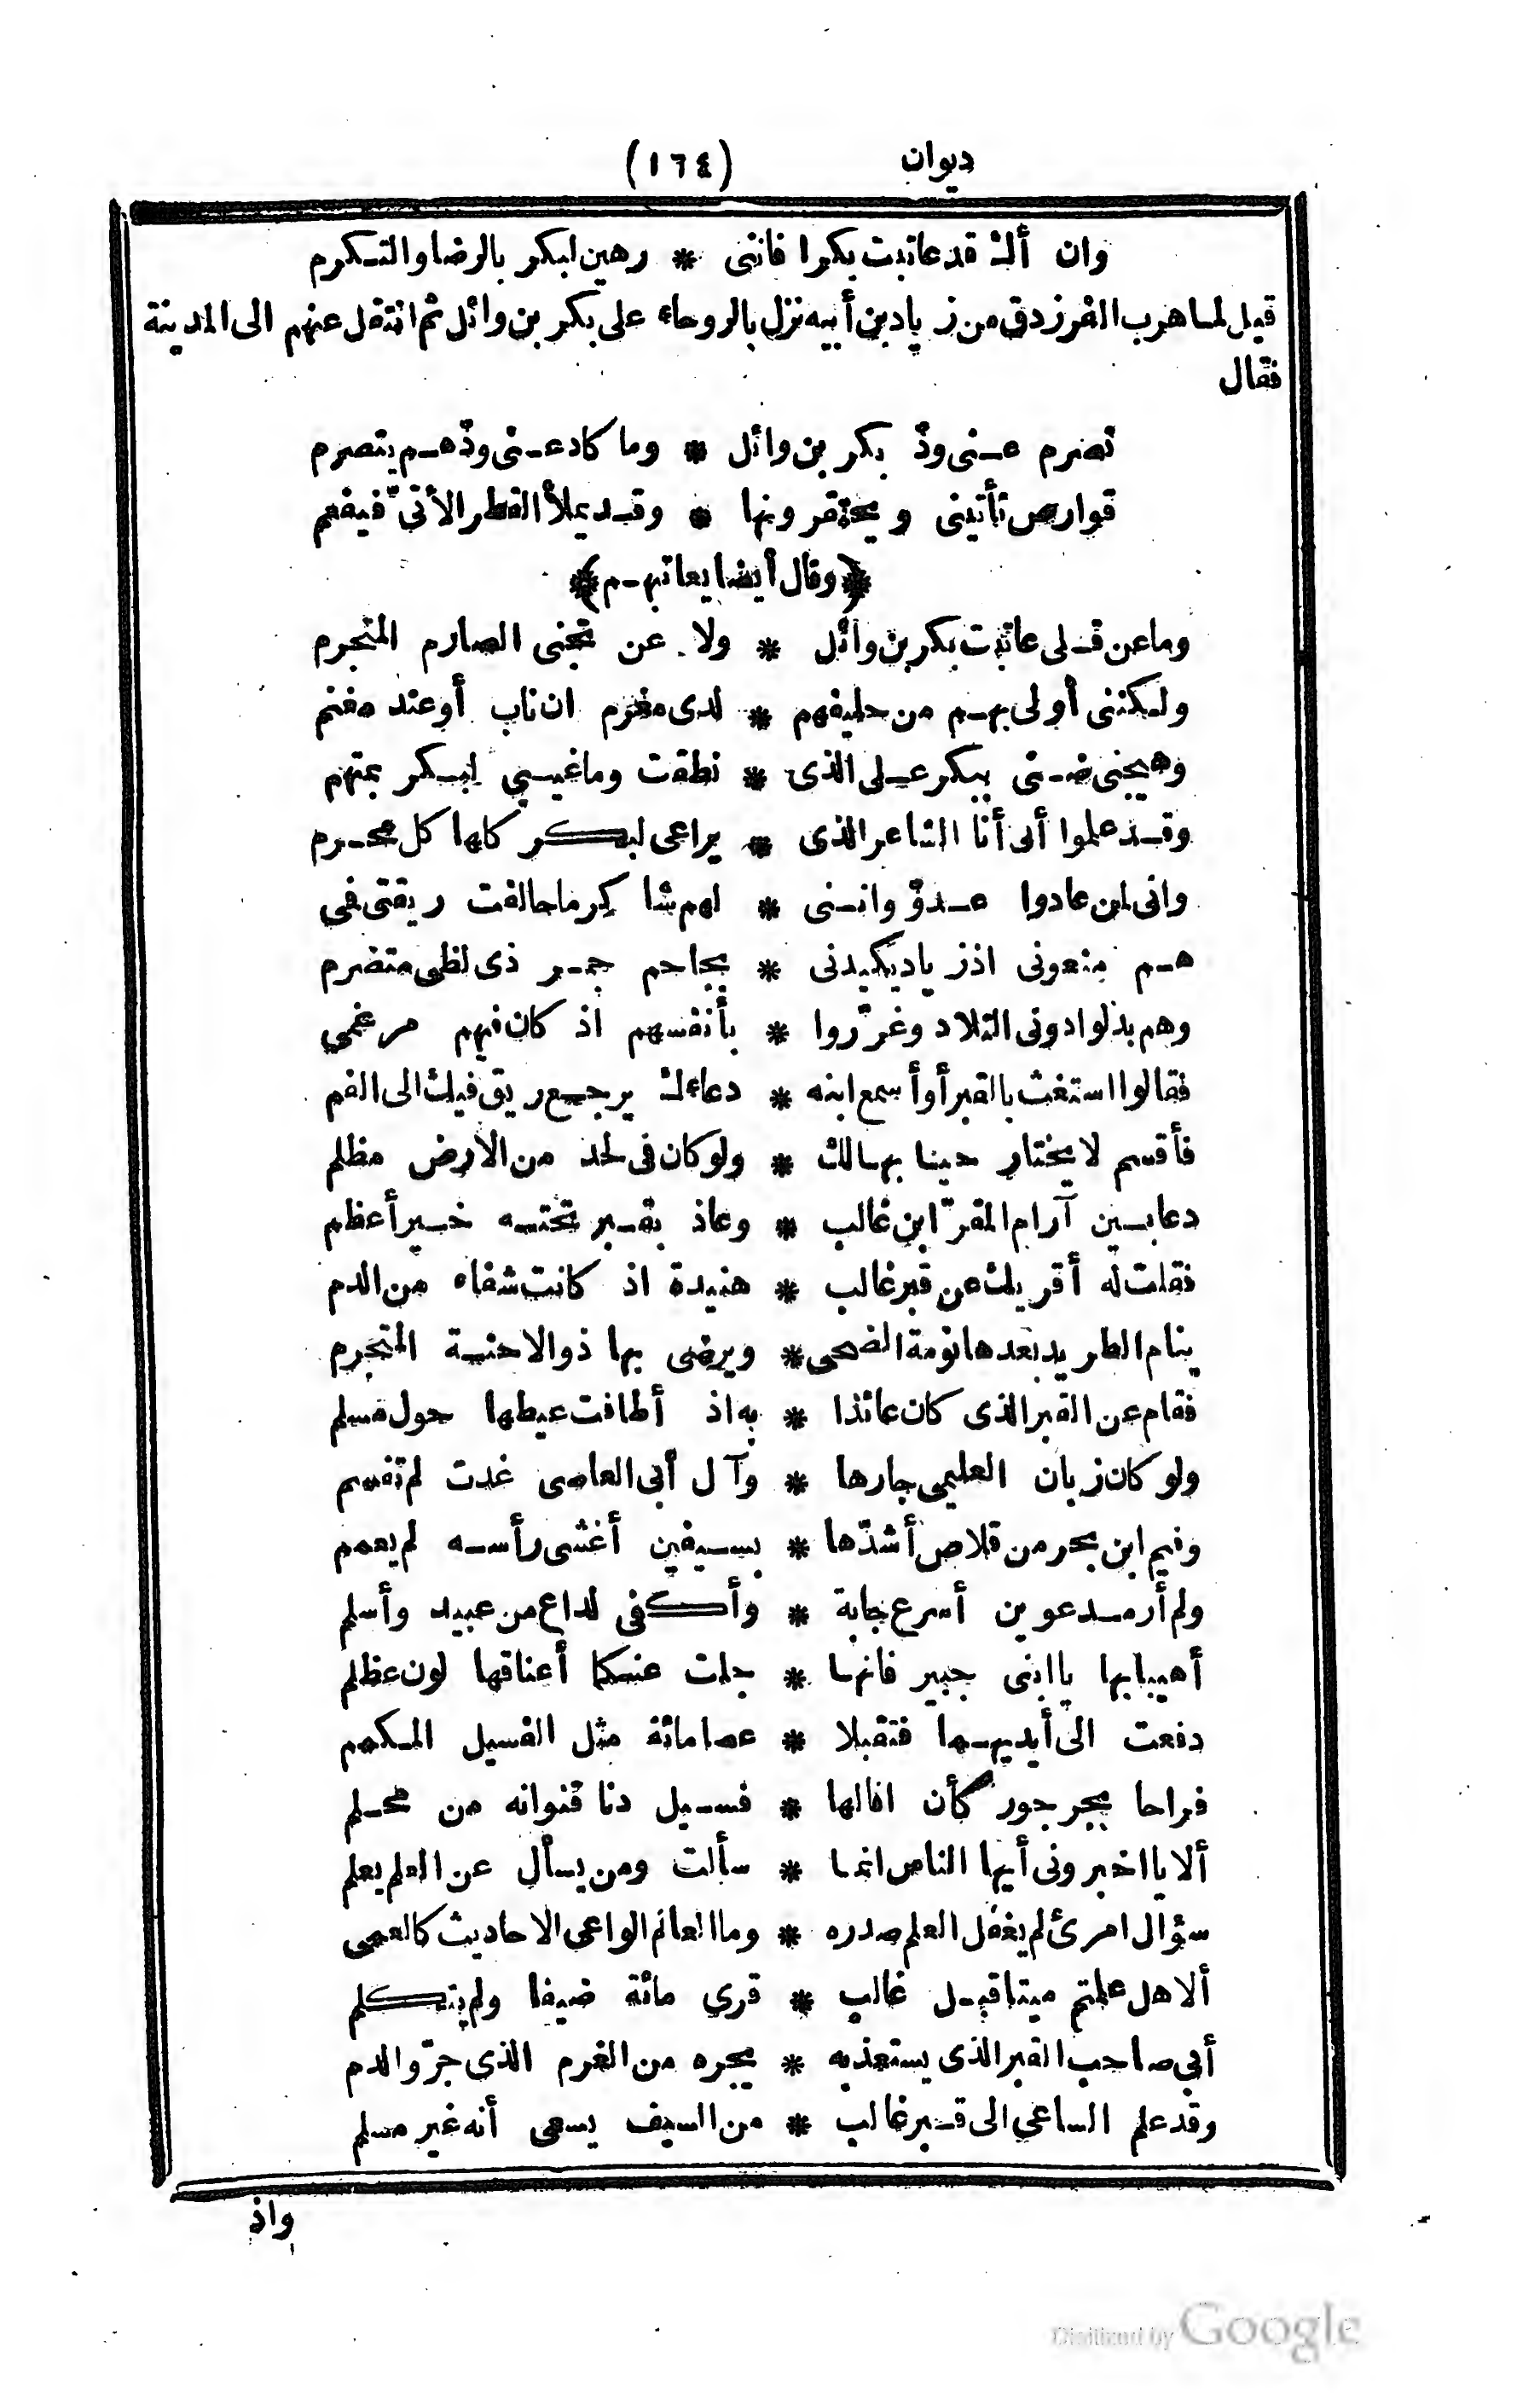 ديوان (١٦٤)
وان أك قد عاتبت بكرا فانني * رهين لبكر بالرضا والتكرم
قيل لما هرب الفرزدق من زياد بن أبيه نزل بالروحاء على بكر بن وائل ثم انتقل عنهم الى المدينة
فقال
تصرم عني ودّ بكر بن وائل * وما كاد عنى ودّهم يتصرم
قوارص تأتيني ويحتقرونها * وقد يملأ القطر الأتىّ فيفعم
﴿وقال أيضا يعاتبهم﴾
وما عن قلى عاتبت بكر بن وائل * ولا عن تجنى الصارم المتجرم
ولكننى أولى بهم من حليفهم * لدى مغرم ان ناب أو عند مغنم
وهيجنى ضنى ببكر على الذى * نطقت وما غيبي لبكر بمتهم
وقد علموا أنى أنا الشاعر الذى * يراعى لبكر كلها كل محرم
وانى لمن عادوا عدوّ واننى * لهم شاكر ما حالفت ريقتى فى
هم منعونى اذ زياد يكيدنى * بجاحم جمر ذى لظى متضرم
وهم بذلوا دونى التلاد وغرّروا * بأنفسهم اذ كان فيهم مرغمى
فقالوا استغث بالقبر أو أسمع ابنه * دعاءك يرجع ريق فيك الى الفم
فأقسم لا يختار حينا بهالك * ولو كان فى لحد من الارض مظلم
دعا بين آرام المقرّ ابن غالب * وعاذ بقبر تحته خير أعظم
فقلت له أقريك عن قبر غالب * هنيدة اذ كانت شفاه من الدم
ينام الطريد بعدها نومة الضحى * ويرضى بها ذو الاحنة المتجرم
فقام عن القبر الذى كان عائذا * به اذ أطافت عيطها حول مسلم
ولو كان زبان العليمى جارها * وآل أبى العاصى غدت لم تقسم
وفيم ابن بحر من قلاص أشدّها * بسيفين أغشى رأسه لم يعمم
ولم أر مدعوين أسرع جابة * وأكفى لداع من عبيد وأسلم
أهيبا بها يا ابنى جبير فانها * جلت عنكما أعناقها لون عظلم
دفعت الى أيديهما فتقبلا * عصا مائة مثل الفسيل المكمم
فراحا بجرجور كأن افالها * فسيل دنا قنوانه من محلم
ألا يا اخبرونى أيها الناس انما * سألت ومن يسأل عن العلم يعلم
سؤال امرئ لم يغفل العلم صدره * وما العالم الواعى الاحاديث كالعمى
ألا هل علمتم ميتا قبل غالب * قرى مائة ضيفا ولم يتكلم
أبى صاحب القبر الذى يستعذ به * يجره من الغرم الذى جرّ والدم
وقد علم الساعى الى قبر غالب * من السيف يسعى أنه غير مسلم
واذ
Digitized by Google